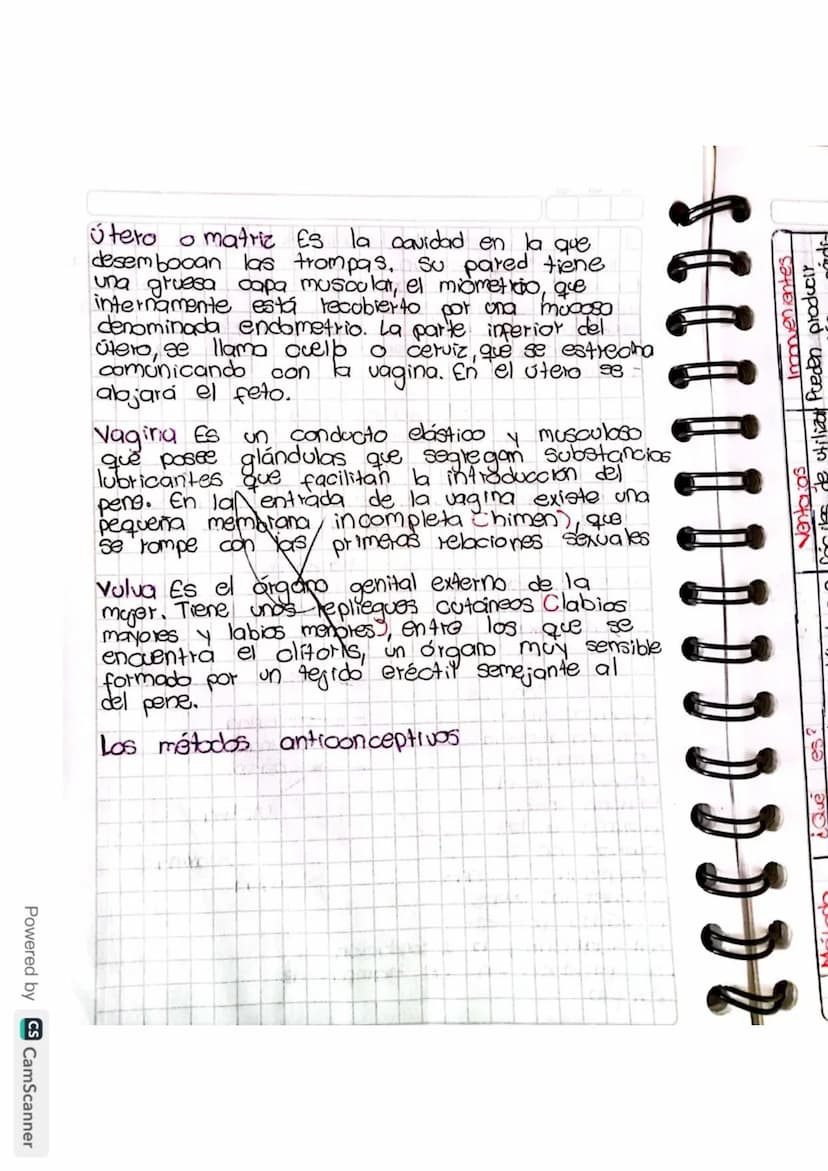 Útero o matriz Es la cavidad en la que
desembocan las trompas. Su pared tiene
una gruesa capa muscolar, el miometrio, que
internamente está recobierto por una mucosa
denominada endometrio. La parte inferior del
útero, se llama cuello o cerviz, que se estrecha
comunicando con la vagina. En el útero se
alojará el feto.
Vagina Es un conducto elástico y musculoso
que posee glándulas que segregan substancias
lubricantes que facilitan la introducción del
pene. En la entrada de la vagina existe una
pequeña membrana incompleta (himen), que
se rompe con las primeras relaciones sexuales
Vulva Es el órgano genital externo de la
mujer. Tiene unos repliegues cutáneos (labios
mayores y labios menores), entre los que se
encuentra el clítoris, un órgano muy sensible
formado por un tejido eréctil semejante al
del pene.
Los métodos anticonceptivos
Inconvenientes
Pueden producir
Ventajas
de utilizar
¿Qué es?
Método
Powered by CS CamScanner